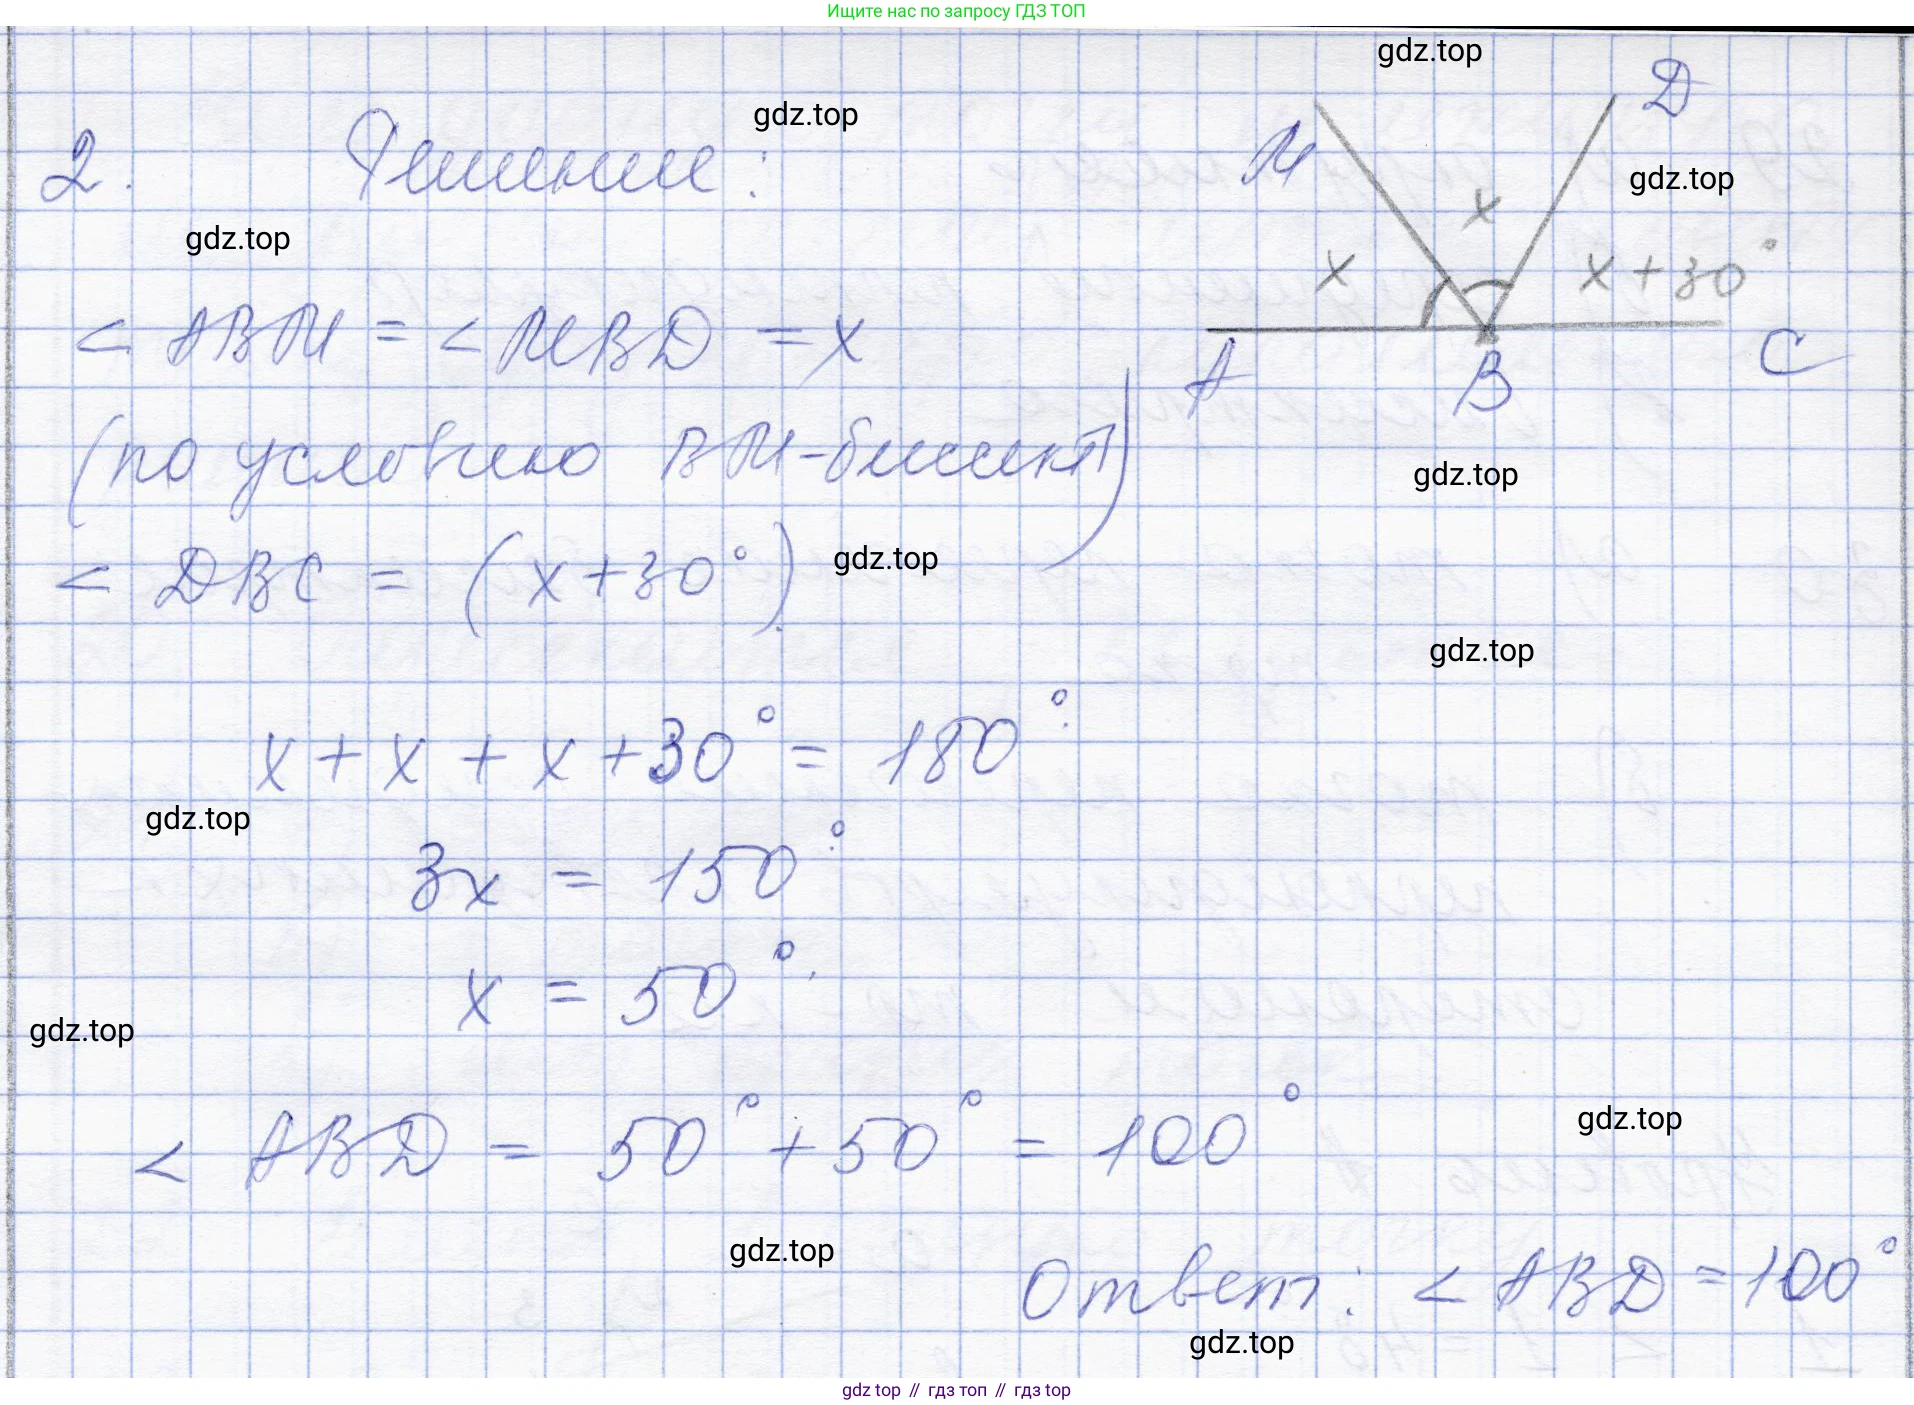 Ищите нас по запросу ГДЗ ТОП
gdz.top
D
gdz.top
2. Решение:
M
gdz.top
x
gdz.top
x
x+30°
< ABM = < MBD = x
A
B
C
(по условию BM-биссект)
gdz.top
< DBC = (x+30°)
gdz.top
gdz.top
x + x + x +30° = 180°
gdz.top
3x = 150°
x = 50°
gdz.top
< ABD = 50° + 50° = 100°
gdz.top
gdz.top
Ответ: < ABD = 100°
gdz.top
gdz top // гдз топ // гдз top